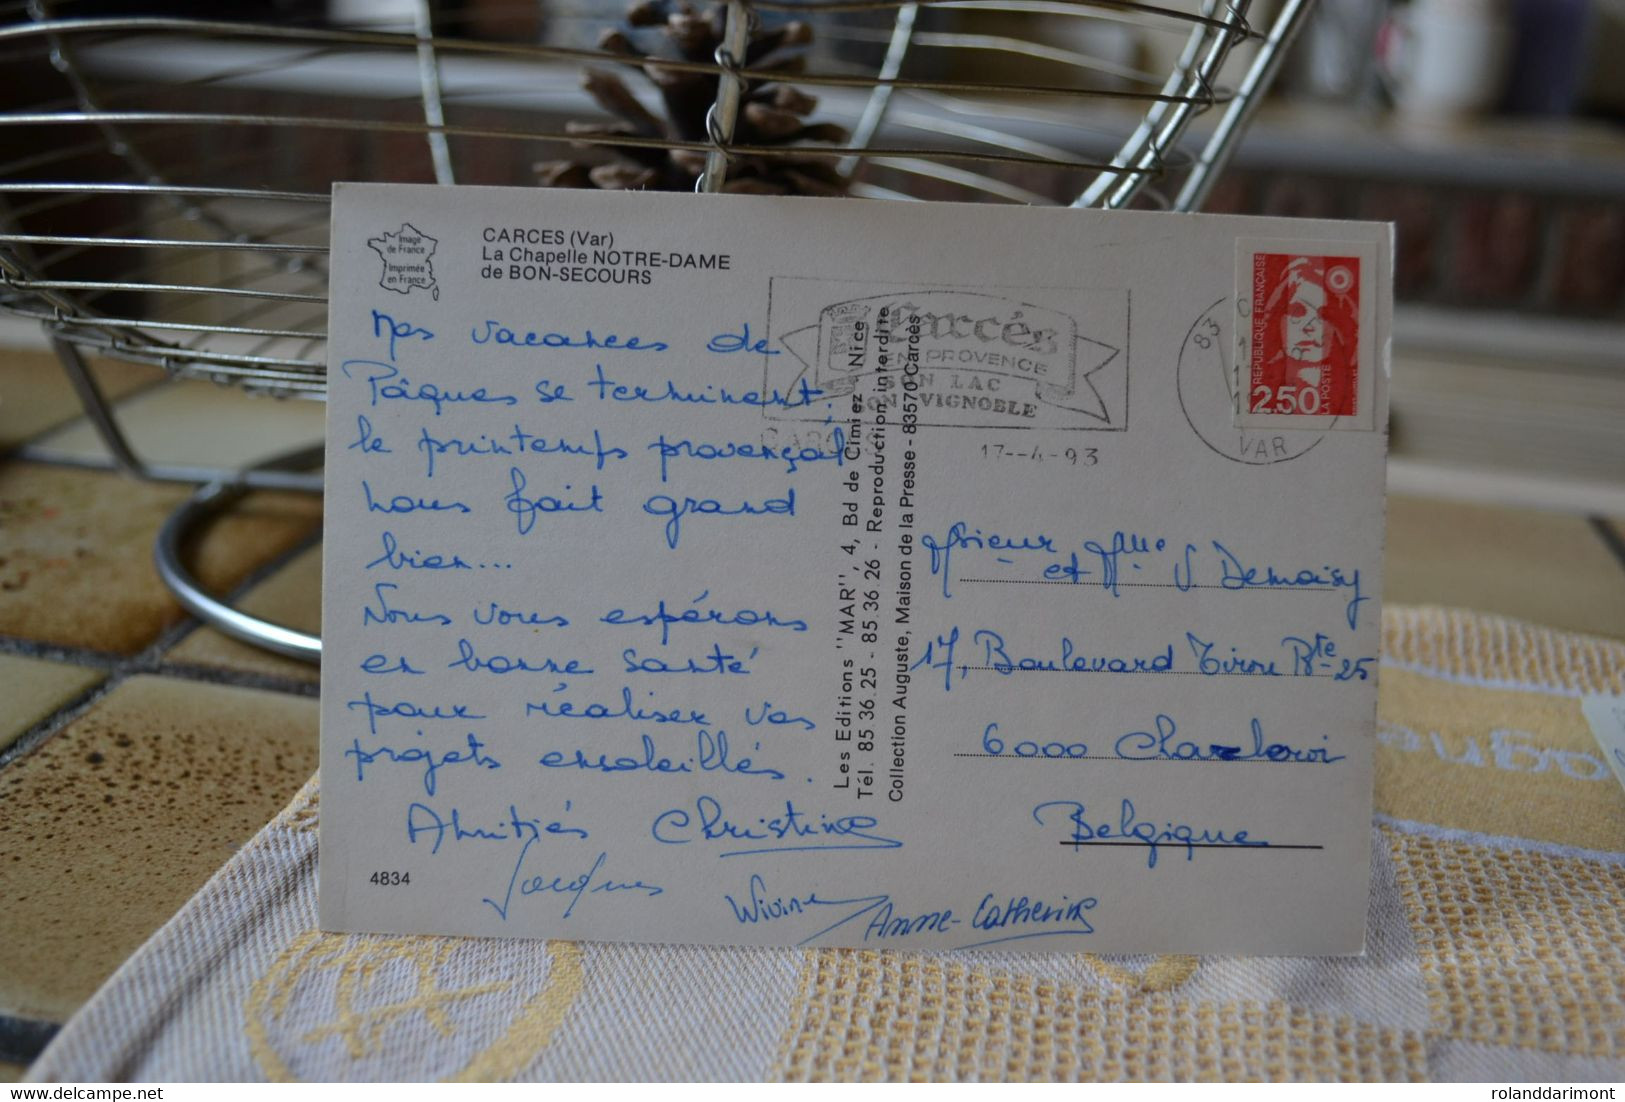 Image
de France
Imprimée
en France
CARCES (Var)
La Chapelle NOTRE-DAME
de BON-SECOURS
Carcès
EN PROVENCE
SON LAC
SON VIGNOBLE
17--4-93
83
VAR
REPUBLIQUE FRANÇAISE
2.50
LA POSTE
Nos vacances de
Pâques se terminent,
le printemps provençal
nous fait grand
bien...
Nous vous espérons
en bonne santé
pour réaliser vos
projets ensoleillés.
Amitiés Christine
Jacques
Wivine
Anne-Catherine
4834
Les Editions "MAR", 4, Bd de Cimiez - Nice
Tél. 85.36.25 - 85.36.26 - Reproduction interdite
Collection Auguste, Maison de la Presse - 83570 Carcès
Monsieur
et Mme J. Demoisy
17, Boulevard Tirou Bte 25
6000 Charleroi
Belgique
delcampe.net
rolanddarimont